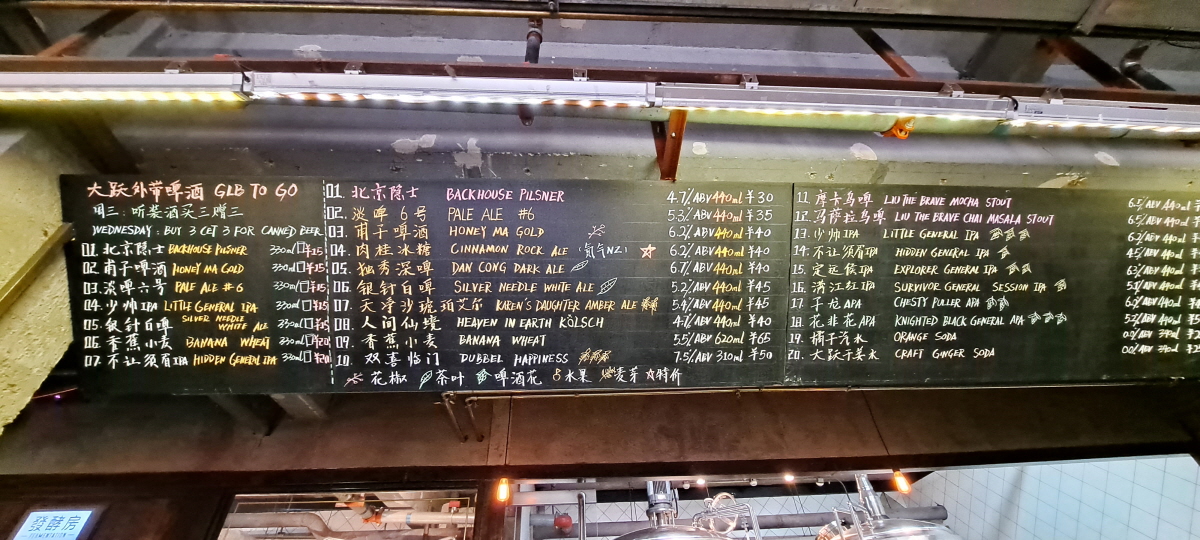 大跃外带啤酒 GLB TO GO
周三：听装酒买三赠三
WEDNESDAY: BUY 3 GET 3 FOR CANNED BEER
01. 北京隐士 BACKHOUSE PILSNER 330ml
02. 甫子啤酒 HONEY MA GOLD 330ml
03. 淡啤六号 PALE ALE #6 330ml
04. 少帅IPA LITTLE GENERAL IPA 330ml
05. 银针白啤 SILVER NEEDLE WHITE ALE 330ml
06. 香蕉小麦 BANANA WHEAT 330ml
07. 不让须眉IPA HIDDEN GENERAL IPA 330ml
01. 北京隐士 BACKHOUSE PILSNER 4.7%ABV 440ml ¥30
02. 淡啤6号 PALE ALE #6 5.3%ABV 440ml ¥35
03. 甫子啤酒 HONEY MA GOLD 6.2%ABV 440ml ¥40
04. 肉桂冰糖 CINNAMON ROCK ALE 氮气N2! 6.2%ABV 440ml ¥40
05. 独秀深啤 DAN CONG DARK ALE 6.7%ABV 440ml ¥40
06. 银针白啤 SILVER NEEDLE WHITE ALE 5.2%ABV 440ml ¥45
07. 天净沙琥珀艾尔 KAREN'S DAUGHTER AMBER ALE 440ml ¥45
08. 人间仙境 HEAVEN IN EARTH KÖLSCH 4.7%ABV 440ml ¥40
09. 香蕉小麦 BANANA WHEAT 5.5%ABV 620ml ¥65
10. 双喜临门 DUBBEL HAPPINESS 7.5%ABV 310ml ¥50
花椒 茶叶 啤酒花 水果 麦芽 特价
11. 摩卡乌啤 LIU THE BRAVE MOCHA STOUT
12. 马萨拉乌啤 LIU THE BRAVE CHAI MASALA STOUT
13. 少帅IPA LITTLE GENERAL IPA
14. 不让须眉IPA HIDDEN GENERAL IPA
15. 定远侯IPA EXPLORER GENERAL IPA
16. 满江红IPA SURVIVOR GENERAL SESSION IPA
17. 干尨APA CHESTY PULLER APA
18. 花非花APA KNIGHTED BLACK GENERAL APA
19. 橘子汽水 ORANGE SODA
20. 大跃干姜水 CRAFT GINGER SODA
發酵房
FERMENTATION